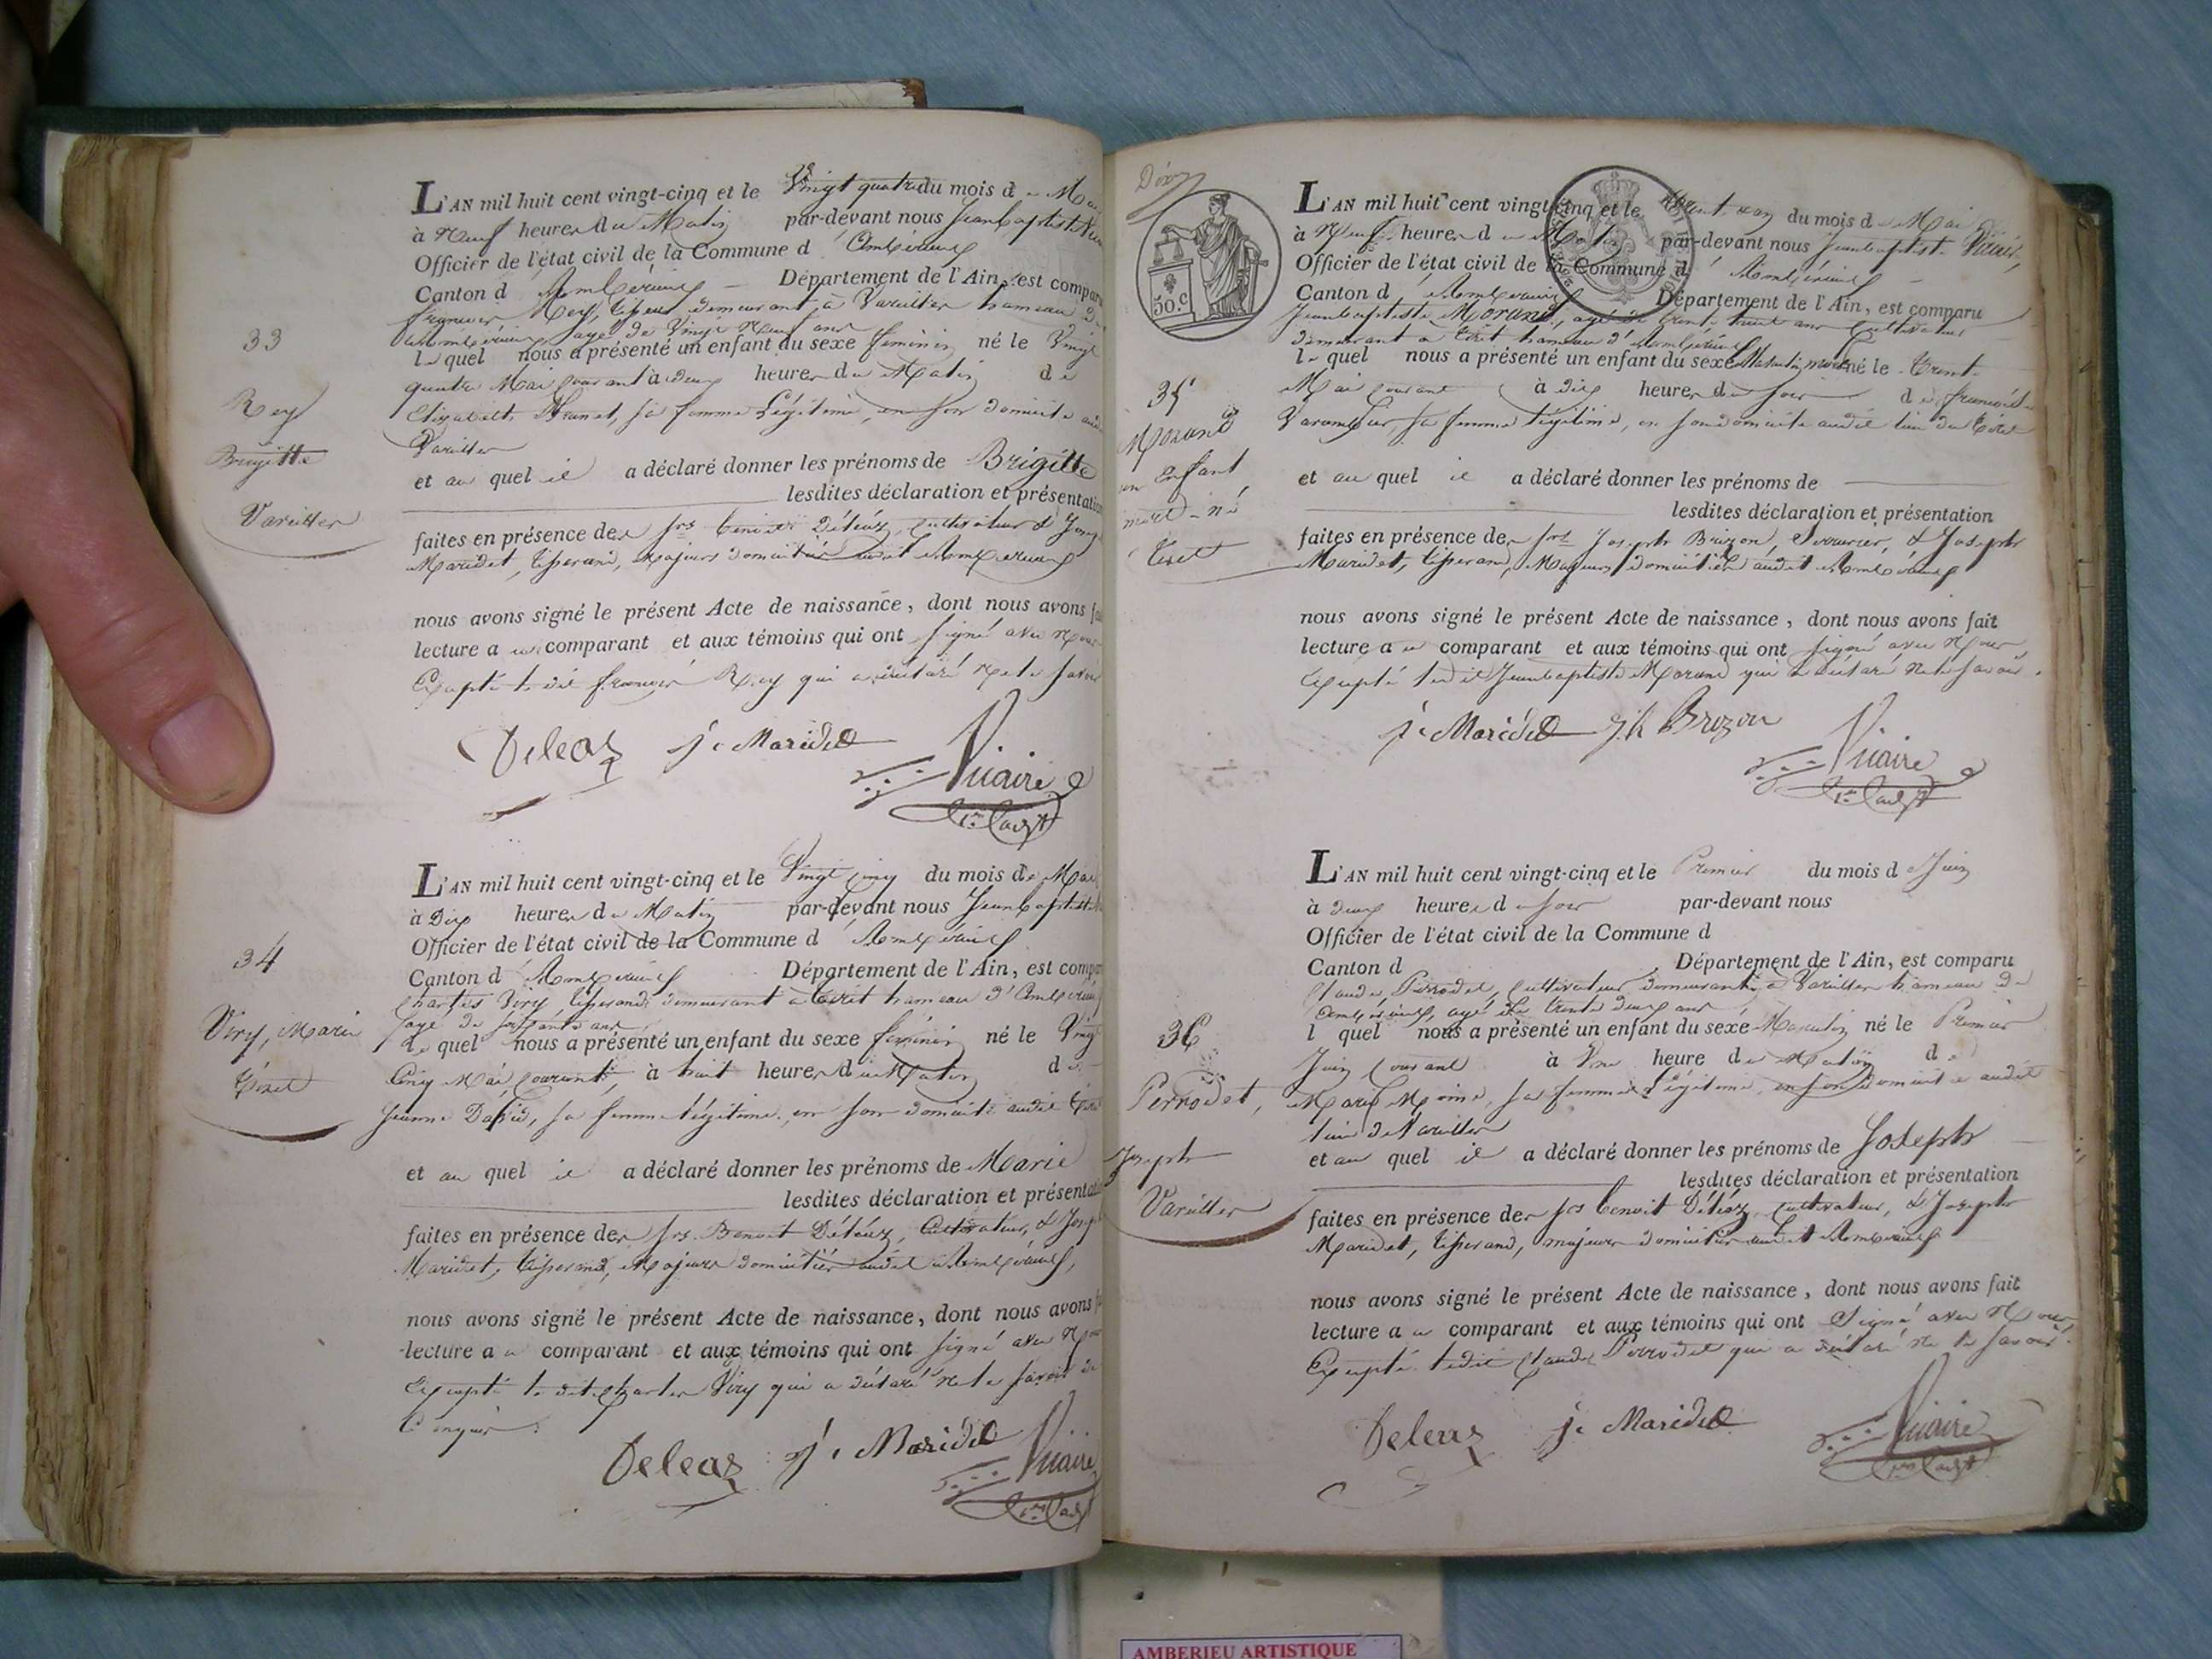 L'AN mil huit cent vingt-cinq et le Vingt quatre du mois de Mai
à Neuf heures du Matin par-devant nous Jean baptiste
Officier de l'état civil de la Commune d' Ambérieux
Canton d' Ambérieux Département de l'Ain, est comparu
françois Rey, demeurant à Vareilles hameau
âgé de Vingt Neuf ans
33
le quel nous a présenté un enfant du sexe féminin né le Vingt
quatre Mai courant à deux heures du Matin de
Rey
Elizabeth Brunet, sa femme Légitime, en son domicile
Brigitte
Vareilles
et au quel il a déclaré donner les prénoms de Brigitte
lesdites déclaration et présentation
Vareilles
faites en présence des Srs benoit Déléaz, cultivateur & Joseph
Maridet, tisserand, Majeurs domiciliés audit Ambérieux
nous avons signé le présent Acte de naissance, dont nous avons fait
lecture au comparant et aux témoins qui ont signé avec Nous
Excepté le dit françois Rey qui a déclaré ne le savoir
Deleaz je Maridet Vicaire
L'AN mil huit cent vingt-cinq et le Vingt cinq du mois de Mai
à Dix heures du Matin par-devant nous Jean baptiste
Officier de l'état civil de la Commune d' Ambérieux
34
Canton d' Ambérieux Département de l'Ain, est comparu
Charles Viry tisserand demeurant à Tiret hameau d'Ambérieux
Viry, Marie
âgé de soixante ans
le quel nous a présenté un enfant du sexe féminin né le Vingt
Tiret
Cinq Mai courant à huit heures du Matin de
Jeanne David, sa femme légitime, en son domicile audit Tiret
et au quel il a déclaré donner les prénoms de Marie
lesdites déclaration et présentation
faites en présence des Srs Benoit Déléaz, Cultivateur, & Joseph
Maridet, tisserand, Majeurs domiciliés audit Ambérieux,
nous avons signé le présent Acte de naissance, dont nous avons
lecture au comparant et aux témoins qui ont signé avec Nous
Excepté le dit Charles Viry qui a déclaré ne le savoir de
ce requis.
Deleaz je Maridet Vicaire
50.c
L'AN mil huit cent vingt-cinq et le trente un du mois de Mai
à Neuf heures du Matin par-devant nous Jean baptiste Vicaire,
Officier de l'état civil de la Commune d' Ambérieux
Canton d' Ambérieux Département de l'Ain, est comparu
Jean baptiste Morand, âgé de trente huit ans Cultivateur
demeurant à Tiret hameau d'Ambérieux
le quel nous a présenté un enfant du sexe Masculin, mort né le trente
35
Mai Courant à dix heures du soir de françoise
Varambier, sa femme légitime, en son domicile audit lieu du Tiret
Morand
un enfant
et au quel il a déclaré donner les prénoms de
mort-né
lesdites déclaration et présentation
Tiret
faites en présence des Srs Joseph Brozon, Serrurier, & Joseph
Maridet, tisserand, Majeurs domiciliés audit Ambérieux
nous avons signé le présent Acte de naissance, dont nous avons fait
lecture au comparant et aux témoins qui ont signé avec Nous,
Excepté le dit Jean baptiste Morand qui a déclaré ne le savoir.
je Maridet Jh Brozon Vicaire
L'AN mil huit cent vingt-cinq et le Premier du mois de Juin
à deux heures du soir par-devant nous
Officier de l'état civil de la Commune d
Canton d Département de l'Ain, est comparu
Claude Perrodet, Cultivateur demeurant à Vareilles hameau de
Ambérieux, âgé de trente deux ans
36
l quel nous a présenté un enfant du sexe Masculin né le Premier
Juin Courant à Une heure du Matin de
Perrodet,
Marie Moine, sa femme Légitime, en son domicile audit
lieu de Vareilles
Joseph
et au quel il a déclaré donner les prénoms de Joseph
lesdites déclaration et présentation
Vareilles
faites en présence des Srs benoit Déléaz, cultivateur, & Joseph
Maridet, tisserand, majeurs domiciliés audit Ambérieux
nous avons signé le présent Acte de naissance, dont nous avons fait
lecture au comparant et aux témoins qui ont Signé avec Nous,
Excepté ledit Claude Perrodet qui a déclaré ne le savoir.
Deleaz je Maridet Vicaire
AMBERIEU ARTISTIQUE